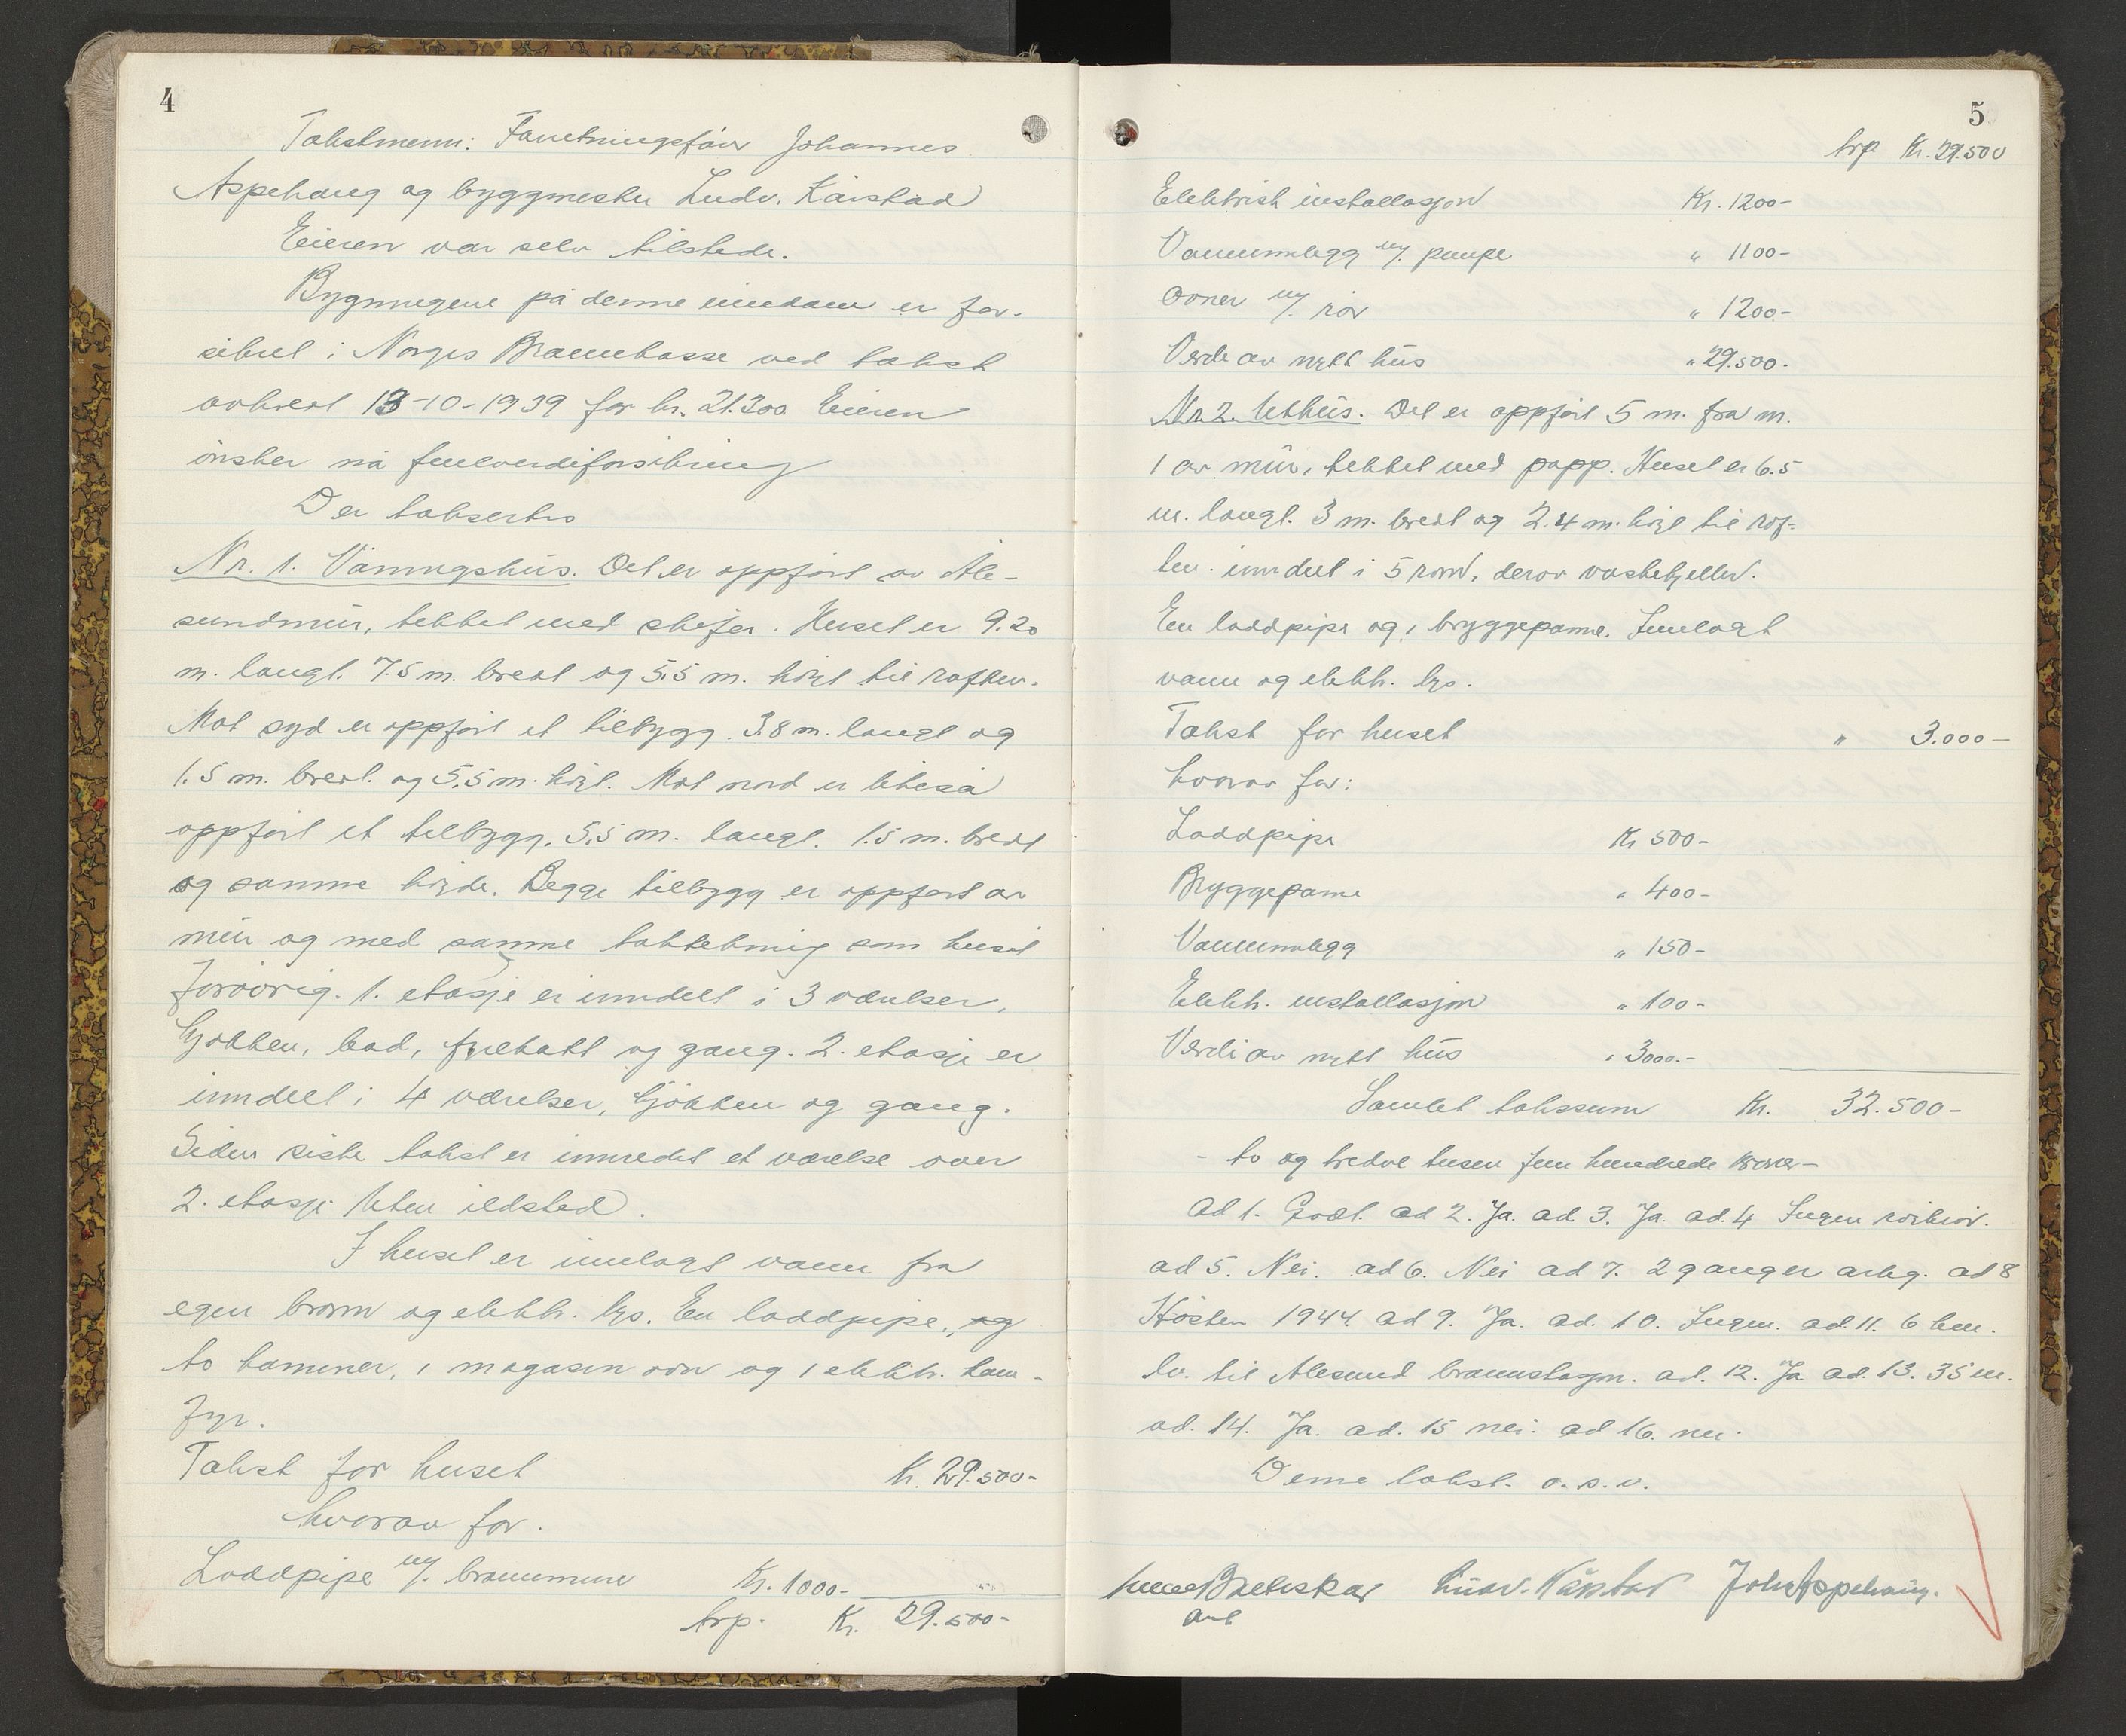 4
Takstmenn: Forretningsfører Johannes
Aspehaug og byggmester Ludv. Kårstad
Eieren var selv tilstede.
Bygningene på denne eiendom er for-
sikret i Norges Brannkasse ved takst
avholdt 13-10-1939 for kr. 21.300 Eieren
ønsker nå fullverdiforsikring
Der takseres
Nr. 1. Våningshus. Det er oppført av Åle-
sundmur, tekket med skifer. Huset er 9.20
m. langt. 7.5 m. bredt og 5.5 m. høgt til raften.
Mot syd er oppført et tilbygg. 3.8 m. langt og
1.5 m. bredt. og 5.5 m. høgt. Mot nord er likeså
oppført et tilbygg. 5.5 m. langt. 1.5 m. bredt
og samme høyde. Begge tilbygg er oppført av
mur og med samme taktekning som huset
forøvrig. 1. etasje er inndelt i 3 værelser,
kjøkken, bad, frukatt og gang. 2. etasje er
inndelt i 4 værelser, kjøkken og gang.
Siden siste takst er innredet et værelse over
2. etasje uten ildsted.
I huset er innlagt vann fra
egen brønn og elektr. lys. En loddpipe, og
to kaminer, 1 magasin ovn og 1 elektr. kom-
fyr.
Takst for huset Kr. 29.500-
hvorav for.
Loddpipe m/. brannmur Kr. 1000-
trp. Kr. 29.500-
5
trp Kr. 29.500
Elektrisk installasjon Kr. 1200-
Vanninnlegg m/. pumpe " 1100-
Ovner m/. rør " 1200-
Verdi av nytt hus " 29.500.
Nr. 2. Uthus. Det er oppført 5 m. fra nr.
1 av mur, tekket med papp. Huset er 6.5
m. langt. 3 m. bredt og 2.4 m. høgt til raf-
ten. inndelt i 5 rom, derav vaskekjeller.
En loddpipe og 1 bryggepanne. Innlagt
vann og elektr. lys.
Takst for huset " 3.000-
hvorav for:
Loddpipe Kr 500-
Bryggepanne " 400-
Vanninnlegg " 150-
Elektr. installasjon " 100-
Verdi av nytt hus " 3000.-
Samlet takssum Kr. 32.500-
- to og tredve tusen fem hundrede kroner-
Ad 1. Godt. ad 2. Ja. ad 3. Ja. ad. 4 Ingen
ad 5. Nei. ad 6. Nei ad 7. 2 ganger årlig. ad 8
Høsten 1944. ad 9. Ja. ad. 10. Ingen. ad. 11. 6 km.
til Ålesund brannstasjon. ad. 12. Ja ad. 13. 35 m.
ad. 14. Ja. ad. 15 nei. ad 16. nei.
Denne takst. o.s.v.
Ludv. Kårstad Joh. Aspehaug.